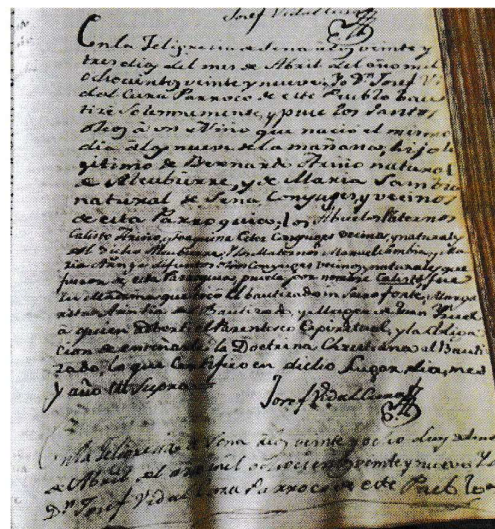 Josef Vidal Cura
En la Feligresia de Sena dia veinte y
tres dias del mes de Abril del año mil
ochocientos veinte y nueve, Yo Dn. Josef Vi
dal Cura Parroco de este Pueblo bau
tizé solemnemente, y puse los Santos
Oleos à un Niño que nació el mismo
dia à las nueve de la mañana, hijo le
gitimo de Bernardo natural
de Alcubierre, y de Maria
natural de Sena Conyuges, y vecinos
de esta Parroquia, los Abuelos Paternos
Calisto y Joaquina Conyuges vecinos, y naturales
del dicho Alcubierre, los Maternos Manuel
Conyuges vecinos, y naturales que
fueron de esta Parroquia por nombre Calisto, fue
la Madrina que tocó el bautizado en Sacro fonte
del Bautizado, y Muger de Juan
à quien adverti el Parentesco Espiritual, y la obliga
cion de enseñar la Doctrina Christiana al Bauti
zado, lo que Certifico en dicho Lugar, dia, mes
y año ut supra
Josef Vidal Cura
En la Feligresia de Sena dia veinte y ocho dias del mes
de Abril, del año mil ochocientos veinte y nueve Yo
Dn. Josef Vidal Cura Parroco de este Pueblo